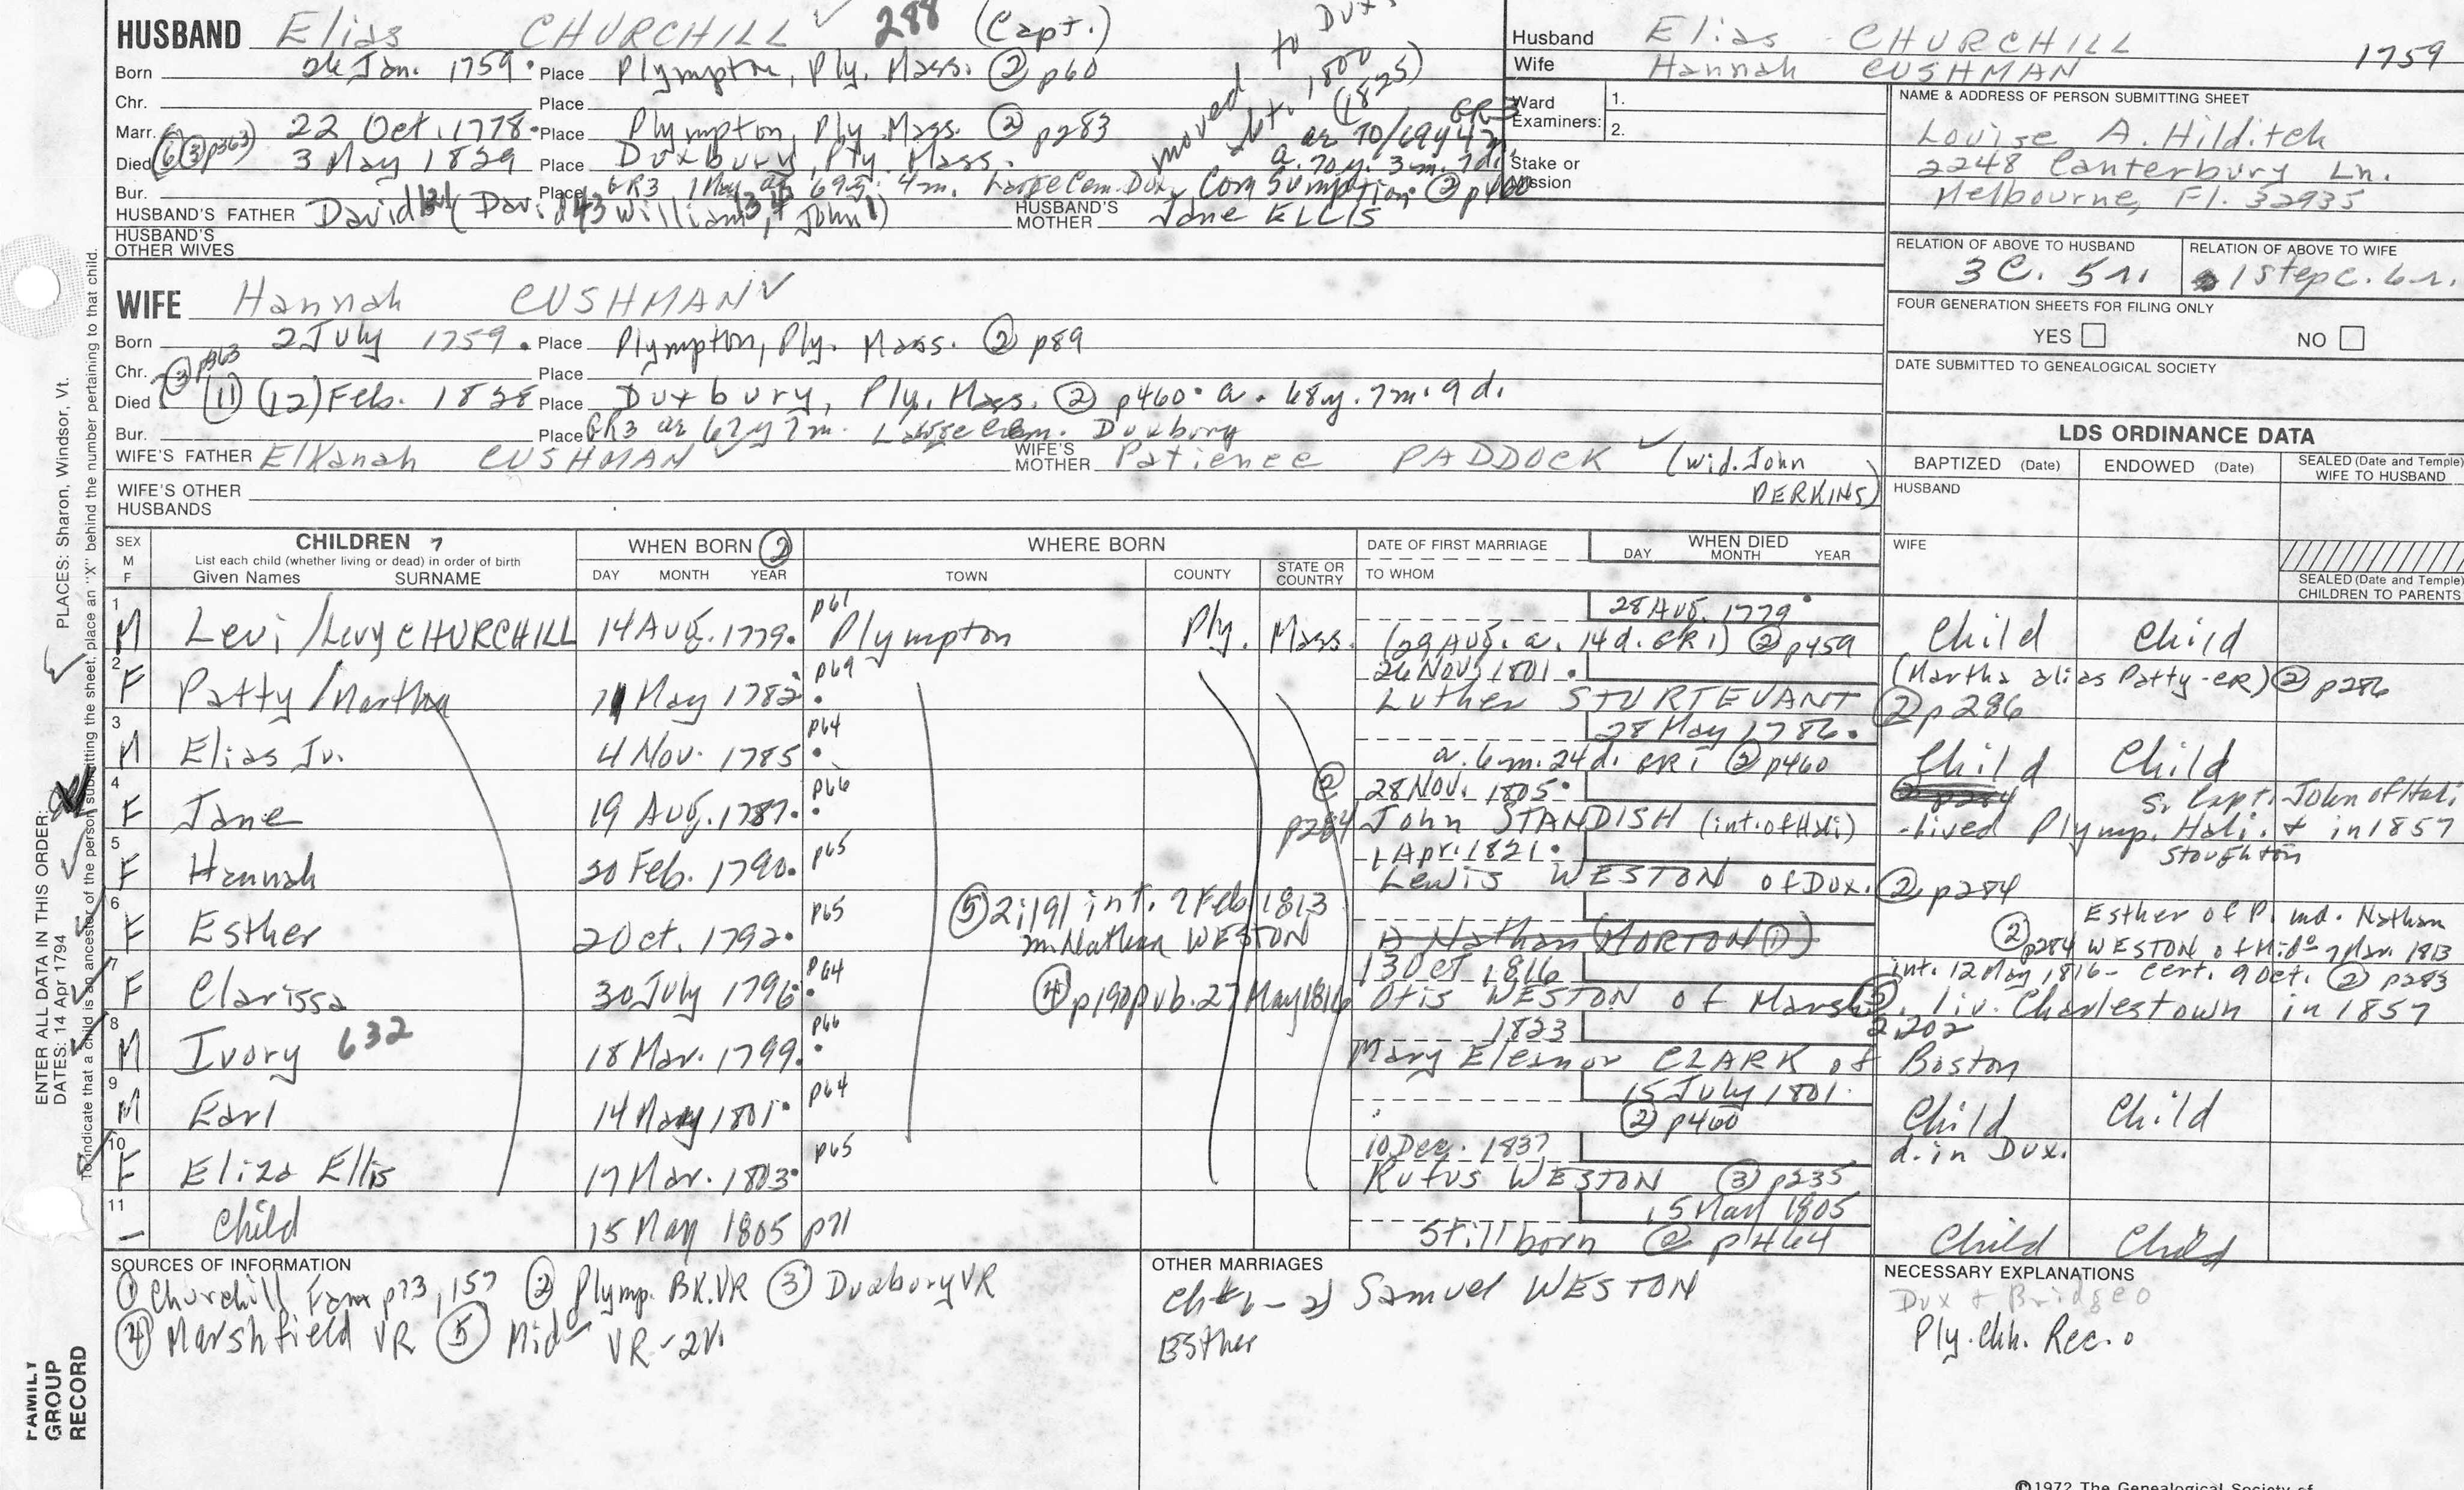 HUSBAND Elias CHURCHILL 288 (Capt.)
Born Jan. 1759 Place Plympton, Ply. Mass. ② p60
moved to Dux.
1800
(1825)
Chr. Place
Marr. 22 Oct. 1778 Place Plympton, Ply. Mass. ② p283
Died 6 (3 p363) 3 May 1829 Place Duxbury, Ply Mass.
a. 70y. 3m. 7d.
Bur. Place GR3 1 May ae 69y. 4m. Large Cem. Dux. Consumption ②
HUSBAND'S FATHER David (David William, John)
HUSBAND'S MOTHER Jane ELLIS
HUSBAND'S OTHER WIVES
Husband Elias CHURCHILL 1759
Wife Hannah CUSHMAN
Ward Examiners: 1.
2.
Stake or Mission
NAME & ADDRESS OF PERSON SUBMITTING SHEET
Louise A. Hilditch
2248 Canterbury Ln.
Melbourne, Fl. 32935
RELATION OF ABOVE TO HUSBAND
3 C. 5 r.
RELATION OF ABOVE TO WIFE
1 step c. 6 r.
FOUR GENERATION SHEETS FOR FILING ONLY
YES NO
DATE SUBMITTED TO GENEALOGICAL SOCIETY
WIFE Hannah CUSHMAN
Born 2 July 1759. Place Plympton, Ply. Mass. ② p89
Chr. Place
Died ③ p363 (11) (12) Feb. 1828 Place Duxbury, Ply. Mass. ② p460. a. 68y. 7m. 9d.
Bur. Place GR3 ae 67y 7m. Large Cem. Duxbury
WIFE'S FATHER Elkanah CUSHMAN
WIFE'S MOTHER Patience PADDOCK (wid. John PERKINS)
WIFE'S OTHER HUSBANDS
LDS ORDINANCE DATA
BAPTIZED (Date) ENDOWED (Date) SEALED (Date and Temple) WIFE TO HUSBAND
HUSBAND
WIFE
SEALED (Date and Temple) CHILDREN TO PARENTS
SEX M F
CHILDREN 7
List each child (whether living or dead) in order of birth
Given Names SURNAME
WHEN BORN ②
DAY MONTH YEAR
WHERE BORN
TOWN COUNTY STATE OR COUNTRY
DATE OF FIRST MARRIAGE
TO WHOM
WHEN DIED
DAY MONTH YEAR
1 M Levi/Levy CHURCHILL 14 Aug. 1779. p61 Plympton Ply. Mass. 28 Aug. 1779
(29 Aug. a. 14d. CR1) ② p459 Child Child
2 F Patty/Martha May 1782 p69 26 Nov. 1801
Luther STURTEVANT ② p286
(Martha alias Patty-CR) ② p286
3 M Elias Jr. 4 Nov. 1785 p64 28 May 1786.
a. 6m. 24d. CR1 ② p460 Child Child
4 F Jane 19 Aug. 1787. p66 ② p284 28 Nov. 1805
John STANDISH (int. of Hali)
s. Capt. John of Hali.
-lived Plymp. Hali. & in 1857
Stoughton
5 F Hannah 20 Feb. 1790. p65 1 Apr. 1821
Lewis WESTON of Dux. ② p284
6 F Esther 2 Oct. 1792. p65 ⑤ 2:191 int. 7 Feb 1813
m. Nathan WESTON
Nathan (MORTON ①)
Esther of P. md. Nathan
② p284 WESTON of Mid. 7 Mar. 1813
7 F Clarissa 30 July 1796. p64 ④ p190 pub. 27 May 1816
13 Oct 1816
Otis WESTON of Marsh
int. 12 May 1816- cert. 9 Oct. ② p283
⑤ 2:202
liv. Charlestown in 1857
8 M Ivory 632 18 Mar. 1799. p66 1823
Mary Eleanor CLARK of Boston
9 M Earl 14 May 1801. p64 15 July 1801.
② p460 Child Child
10 F Eliza Ellis 17 Mar. 1803. p65 10 Dec. 1837
Rufus WESTON ③ p235
d. in Dux.
11 — Child 15 May 1805 p71 15 May 1805
Stillborn ② p464 Child Child
SOURCES OF INFORMATION
① Churchill Fam p73, 157 ② Plymp. BK. VR ③ Duxbury VR
④ Marshfield VR ⑤ Mid VR-2V.
OTHER MARRIAGES
ch #6 - 2) Samuel WESTON
Esther
NECESSARY EXPLANATIONS
Dux & Bridge O
Ply. Chh. Rec. o
©1972 The Genealogical Society of
ENTER ALL DATA IN THIS ORDER:
DATES: 14 Apr 1794
PLACES: Sharon, Windsor, Vt.
To indicate that a child is an ancestor of the person submitting the sheet, place an "X" behind the number pertaining to that child.
FAMILY GROUP RECORD